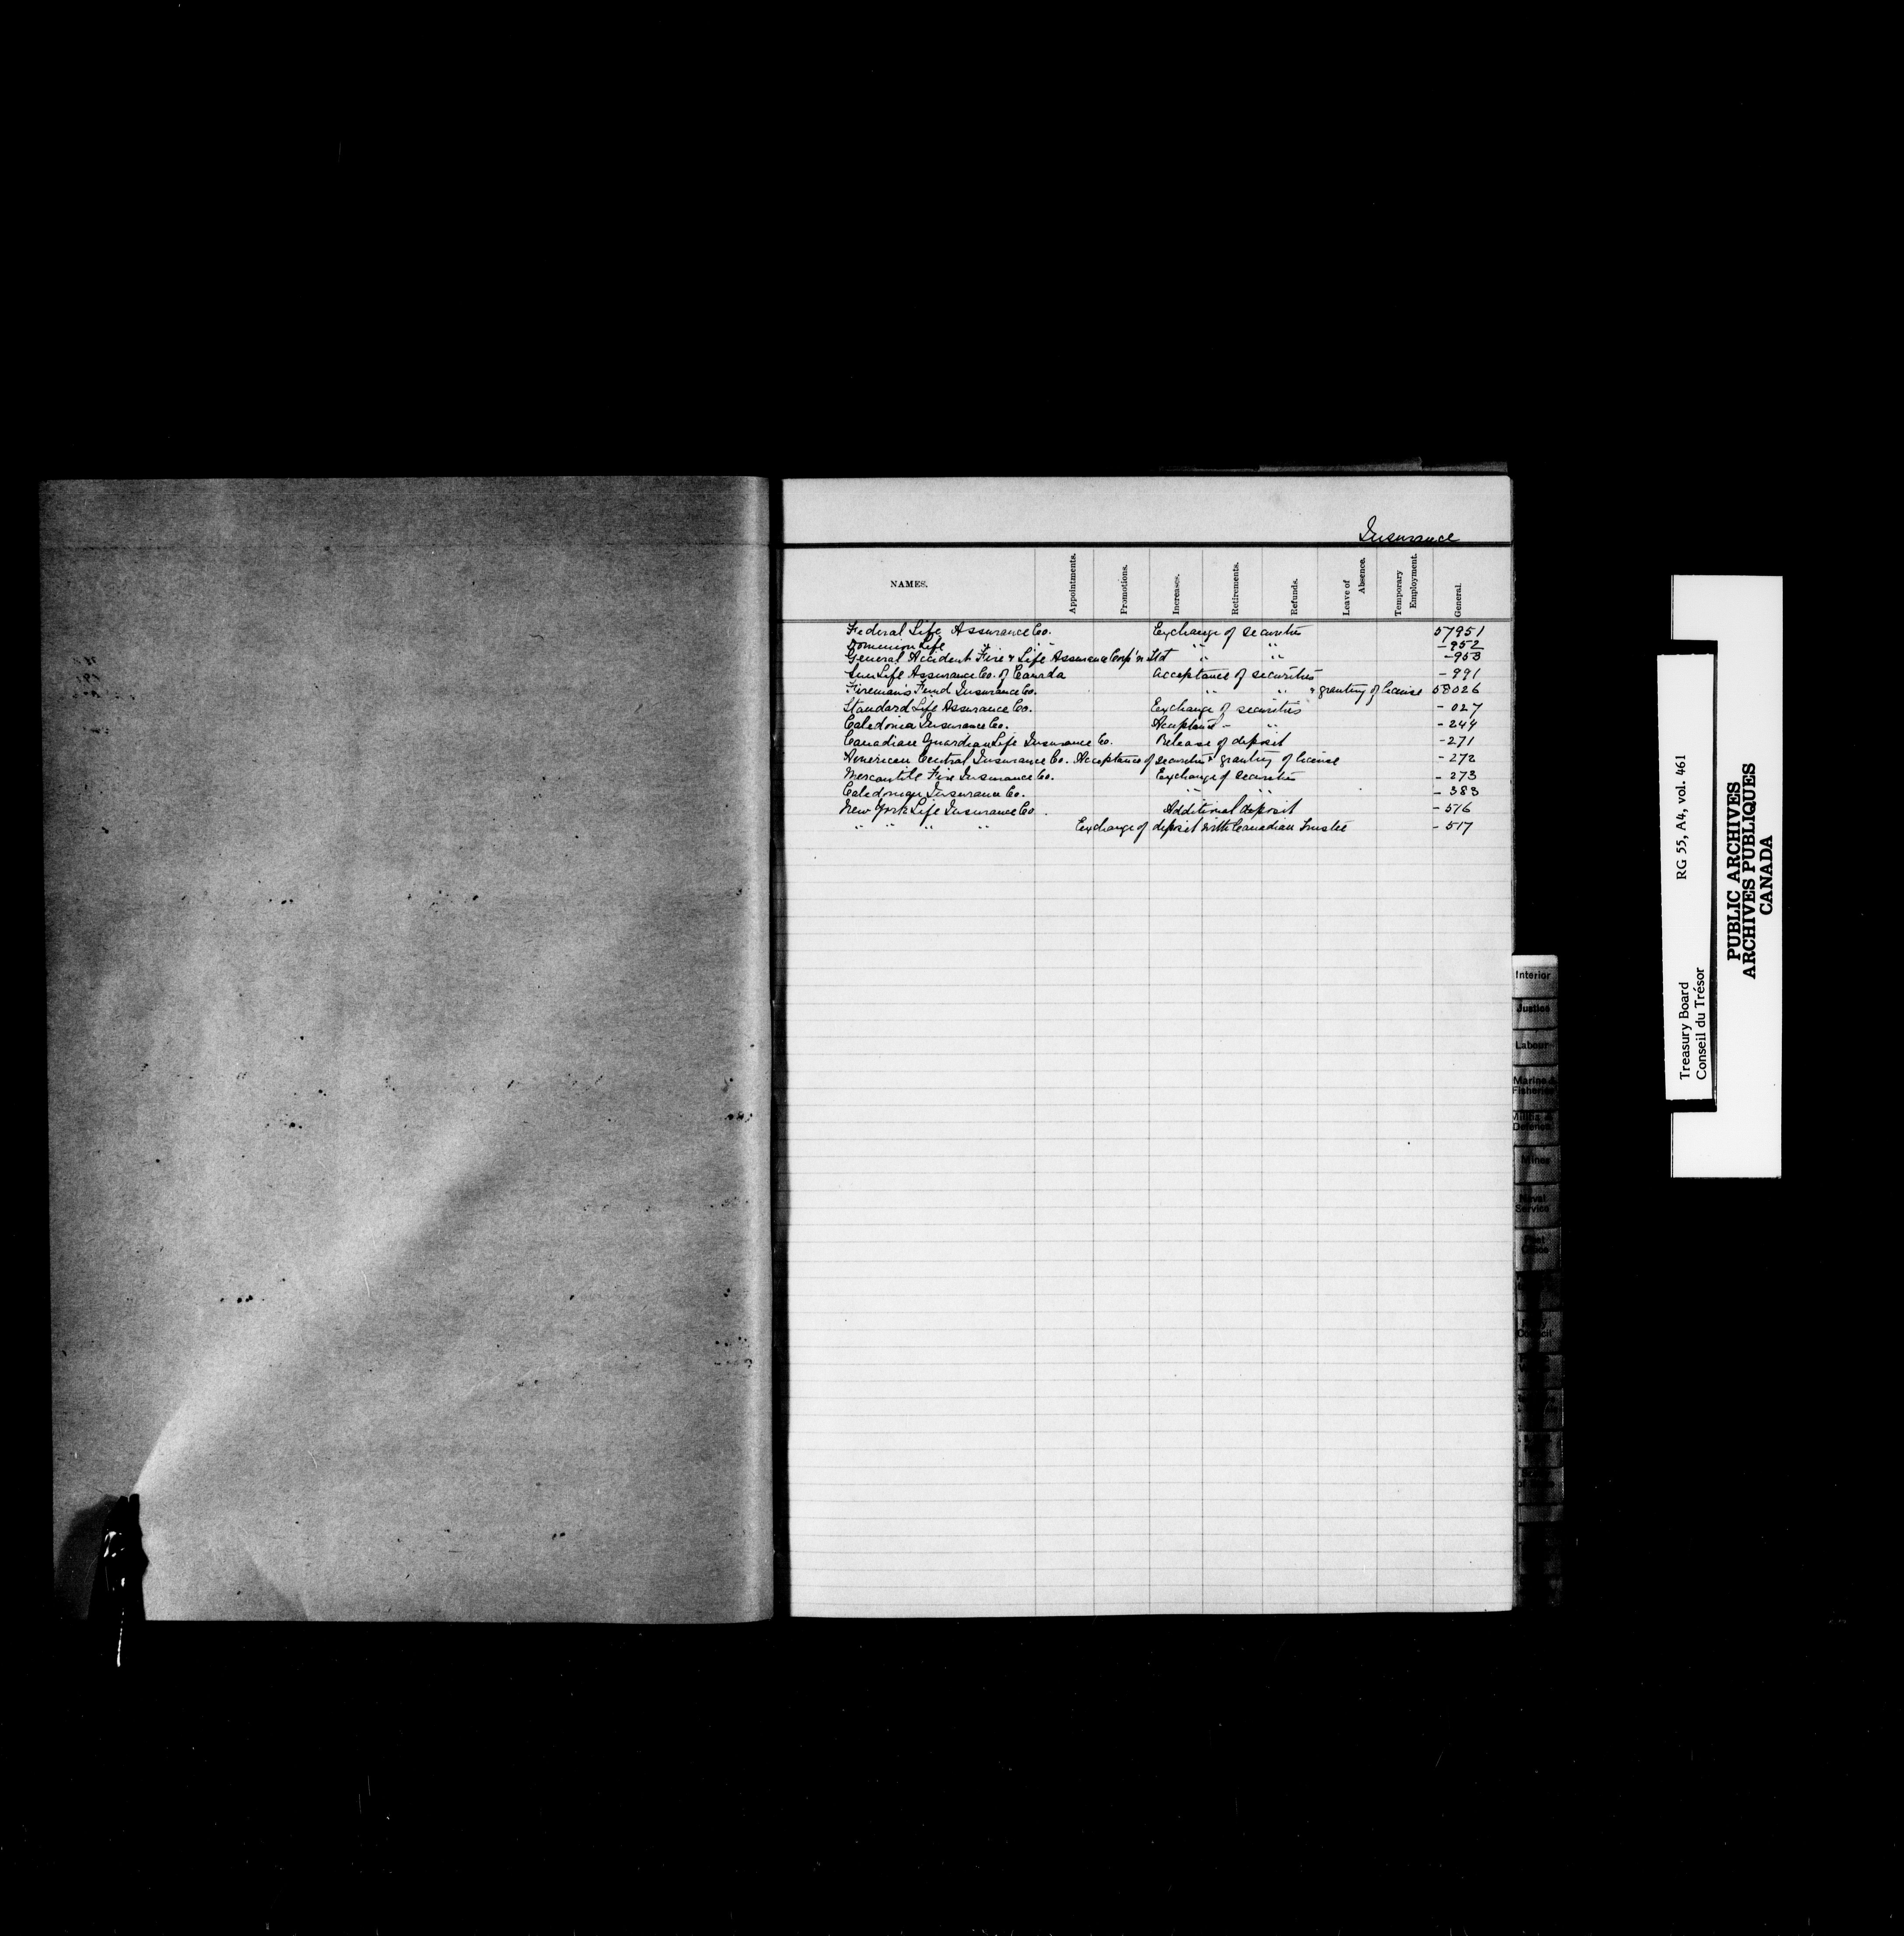 Insurance
NAMES. Appointments. Promotions. Increases. Retirements. Refunds. Leave of Absence. Temporary Employment. General.
Federal Life Assurance Co. Exchange of securities 57951
Dominion Life " " " " - 952
General Accident Fire & Life Assurance Corp'n Ltd " " - 953
Sun Life Assurance Co. of Canada Acceptance of securities - 991
Fireman's Fund Insurance Co. " " & granting of license 58026
Standard Life Assurance Co. Exchange of securities - 027
Caledonia Insurance Co. " " - 244
Canadian Guardian Life Insurance Co. Release of deposit - 271
American Central Insurance Co. Acceptance of securities & granting of license - 272
Mercantile Fire Insurance Co. Exchange of securities - 273
Caledonian Insurance Co. " " - 383
New York Life Insurance Co. Additional deposit - 516
" " " " Exchange of deposit with Canadian Trustee - 517
Interior
Justice
Labour
Marine & Fisheries
Militia & Defence
Mines
Naval Service
Post Office
Council
Treasury Board RG 55, A4, vol. 461
Conseil du Trésor
PUBLIC ARCHIVES
ARCHIVES PUBLIQUES
CANADA